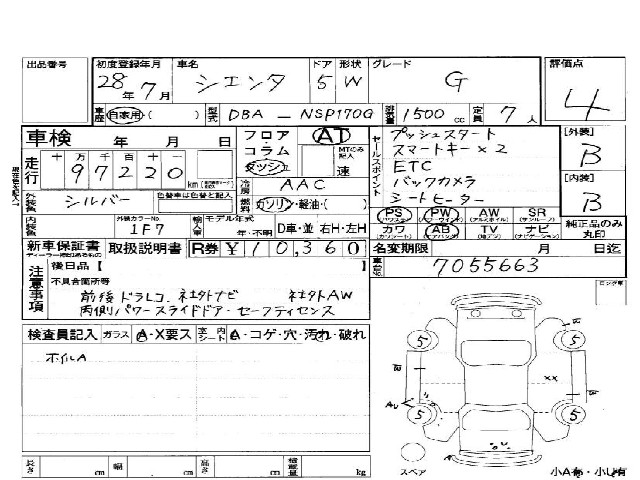 出品番号
初度登録年月 28年 7月
車名 シエンタ
ドア 5 形状 W
グレード G
評価点 4
車歴 自家用・( )
型式 DBA-NSP170G
排気量 1500cc
定員 7人
車検 年 月 日
フロア AT
コラム
ダッシュ
MTのみ記入 速
走行 十万 千百十一
97220 km
冷房 AAC
燃料 ガソリン・軽油・( )
セールスポイント
プッシュスタート
スマートキー×2
ETC
バックカメラ
シートヒーター
[外装] B
[内装] B
外装色 シルバー
色替車は色替と記入
内装色
外装カラーNo. 1F7
輸入車 モデル年式 年・不明
D車・並 右H・左H
PS PW AW SR
カワ AB TV ナビ
純正品のみ丸印
新車保証書 取扱説明書 R券 ¥10,360
名変期限 月 日迄
車台No. 7055663
注意事項
後日品【 】
不具合箇所等
前後ドラレコ、社外ナビ 社外AW
両側パワースライドドア・セーフティセンス
検査員記入 ガラス A・X要ス 室内シート A・コゲ・穴・汚れ・破れ
ホイルA
5 5
XX
5 5
スペア
小A有・小U有
長さ cm 幅 cm 高さ cm 積載量 kg